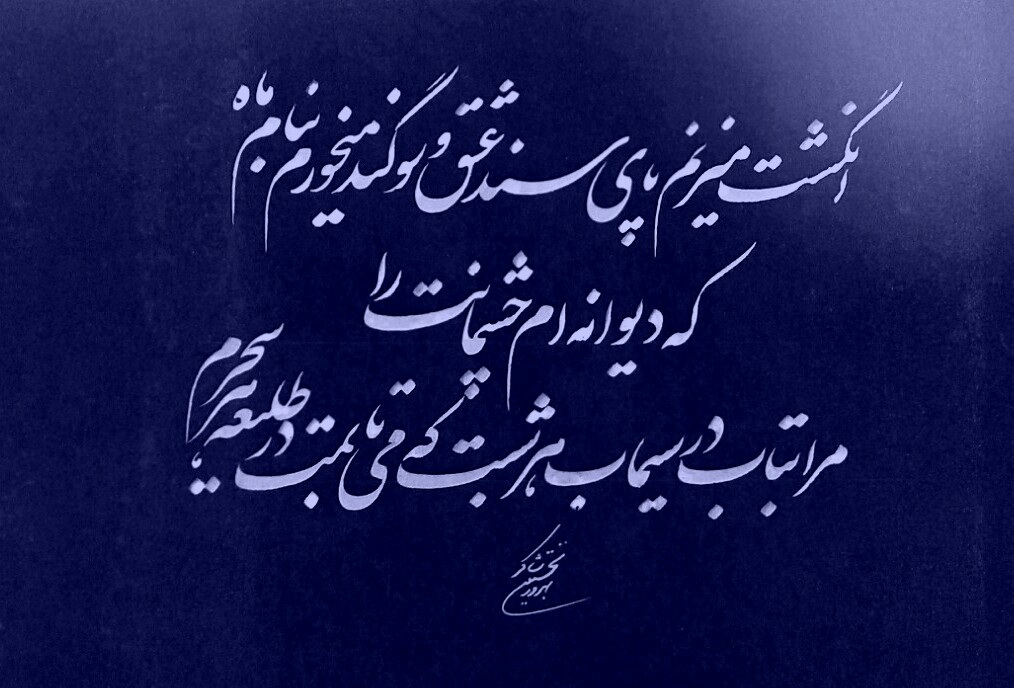 انگشت میزنم پای سند عشق و سوگند میخورم بنام ماه
که دیوانه ام چشمانت را
مرا بتاب در سیماب هر شبت که می تابمت در طلیعه هر سحرم